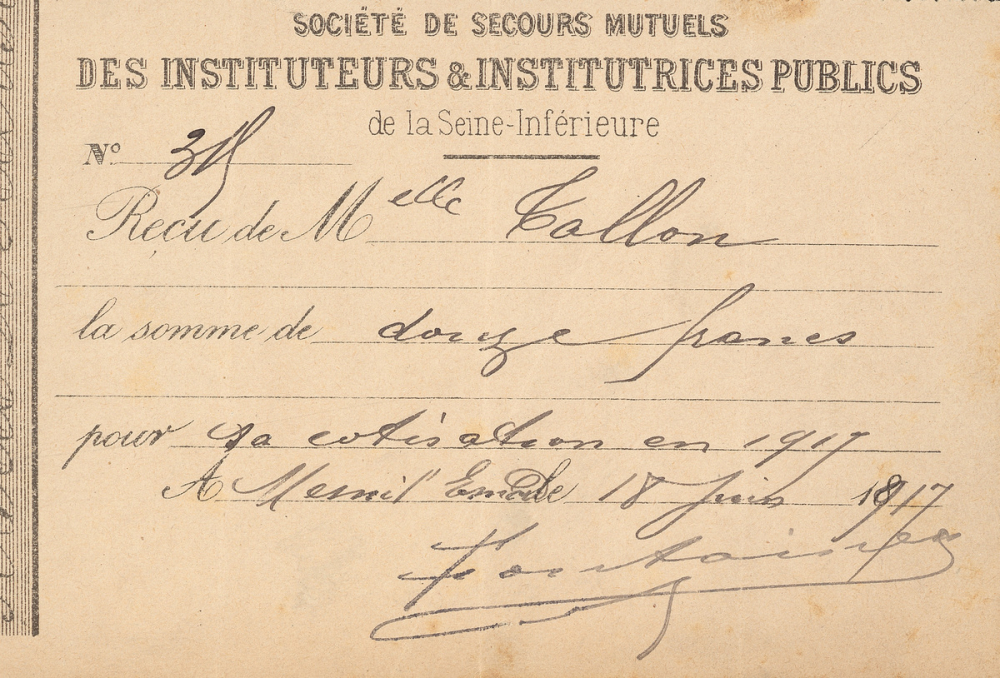 SOCIÉTÉ DE SECOURS MUTUELS
DES INSTITUTEURS & INSTITUTRICES PUBLICS
de la Seine-Inférieure
N°
Reçu de Melle Tallon
la somme de douze francs
pour sa cotisation en 1917
A Mesnil Esnard le 18 Juin 1917
Fontaine